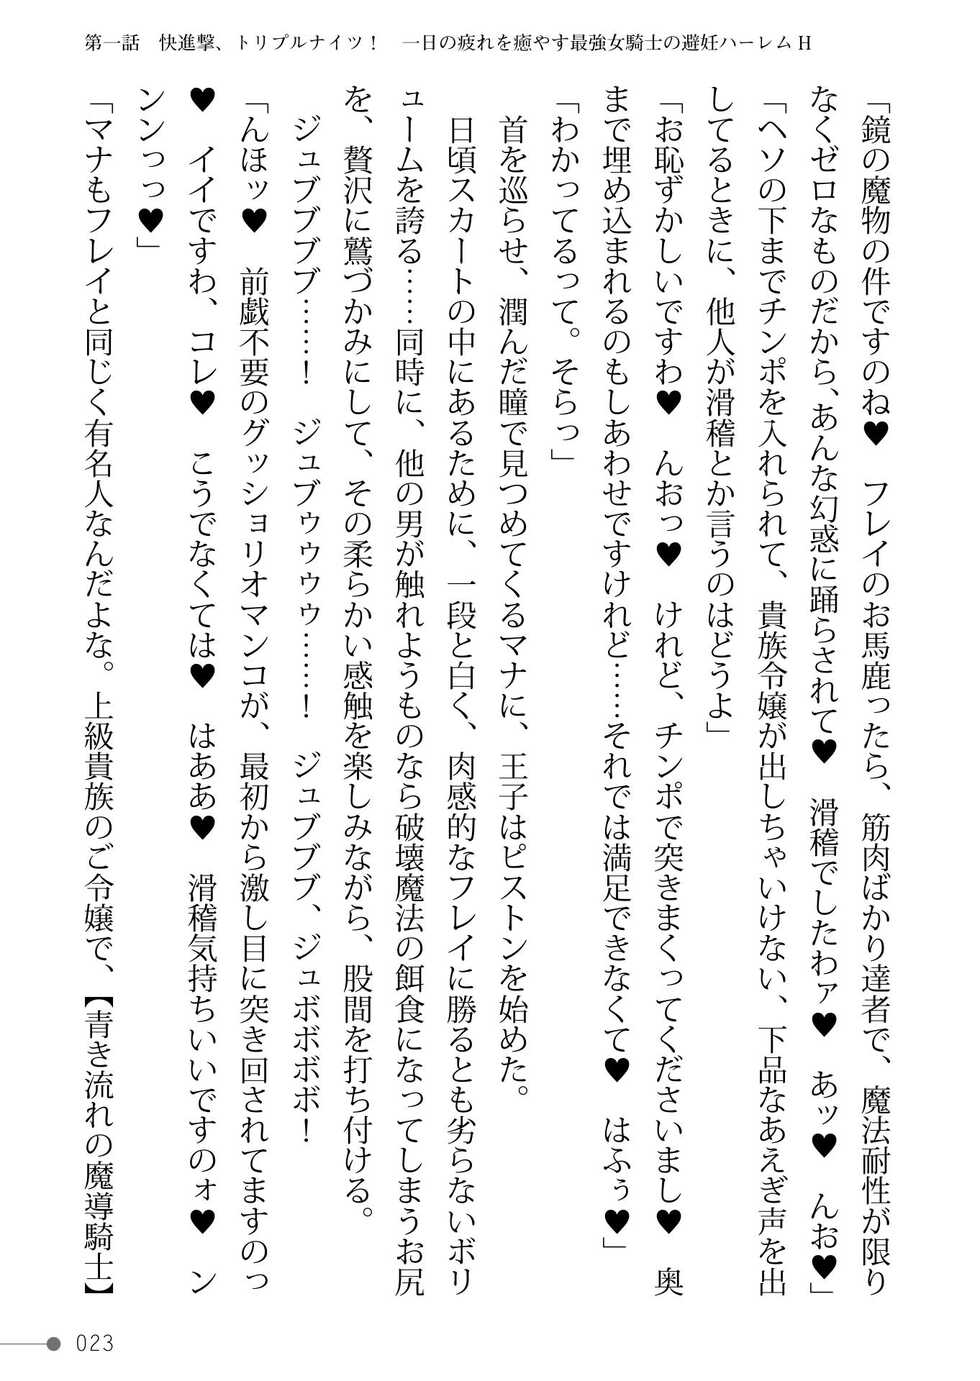 第一話　快進撃、トリプルナイツ！　一日の疲れを癒やす最強女騎士の避妊ハーレムH
「鏡の魔物の件ですのね♥　フレイのお馬鹿ったら、筋肉ばかり達者で、魔法耐性が限り
なくゼロなものだから、あんな幻惑に踊らされて♥　滑稽でしたわァ♥　あッ♥　んお♥」
「ヘソの下までチンポを入れられて、貴族令嬢が出しちゃいけない、下品なあえぎ声を出
してるときに、他人が滑稽とか言うのはどうよ」
「お恥ずかしいですわ♥　んおっ♥　けれど、チンポで突きまくってくださいまし♥　奥
まで埋め込まれるのもしあわせですけれど……それでは満足できなくて♥　はふぅ♥」
「わかってるって。そらっ」
首を巡らせ、潤んだ瞳で見つめてくるマナに、王子はピストンを始めた。
日頃スカートの中にあるために、一段と白く、肉感的なフレイに勝るとも劣らないボリ
ュームを誇る……同時に、他の男が触れようものなら破壊魔法の餌食になってしまうお尻
を、贅沢に鷲づかみにして、その柔らかい感触を楽しみながら、股間を打ち付ける。
ジュブブブブ……！　ジュブゥゥゥゥ……！　ジュブブブ、ジュボボボボ！
「んほッ♥　前戯不要のグッショリオマンコが、最初から激し目に突き回されてますのっ
♥　イイですわ、コレ♥　こうでなくては♥　はああ♥　滑稽気持ちいいですのォ♥　ン
ンンっっ♥」
「マナもフレイと同じく有名人なんだよな。上級貴族のご令嬢で、【青き流れの魔導騎士】
023